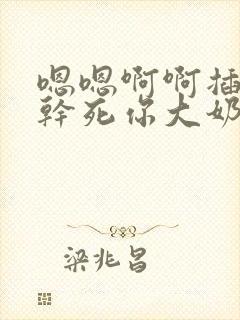 嗯嗯啊啊插
幹死你大奶
梁兆昌